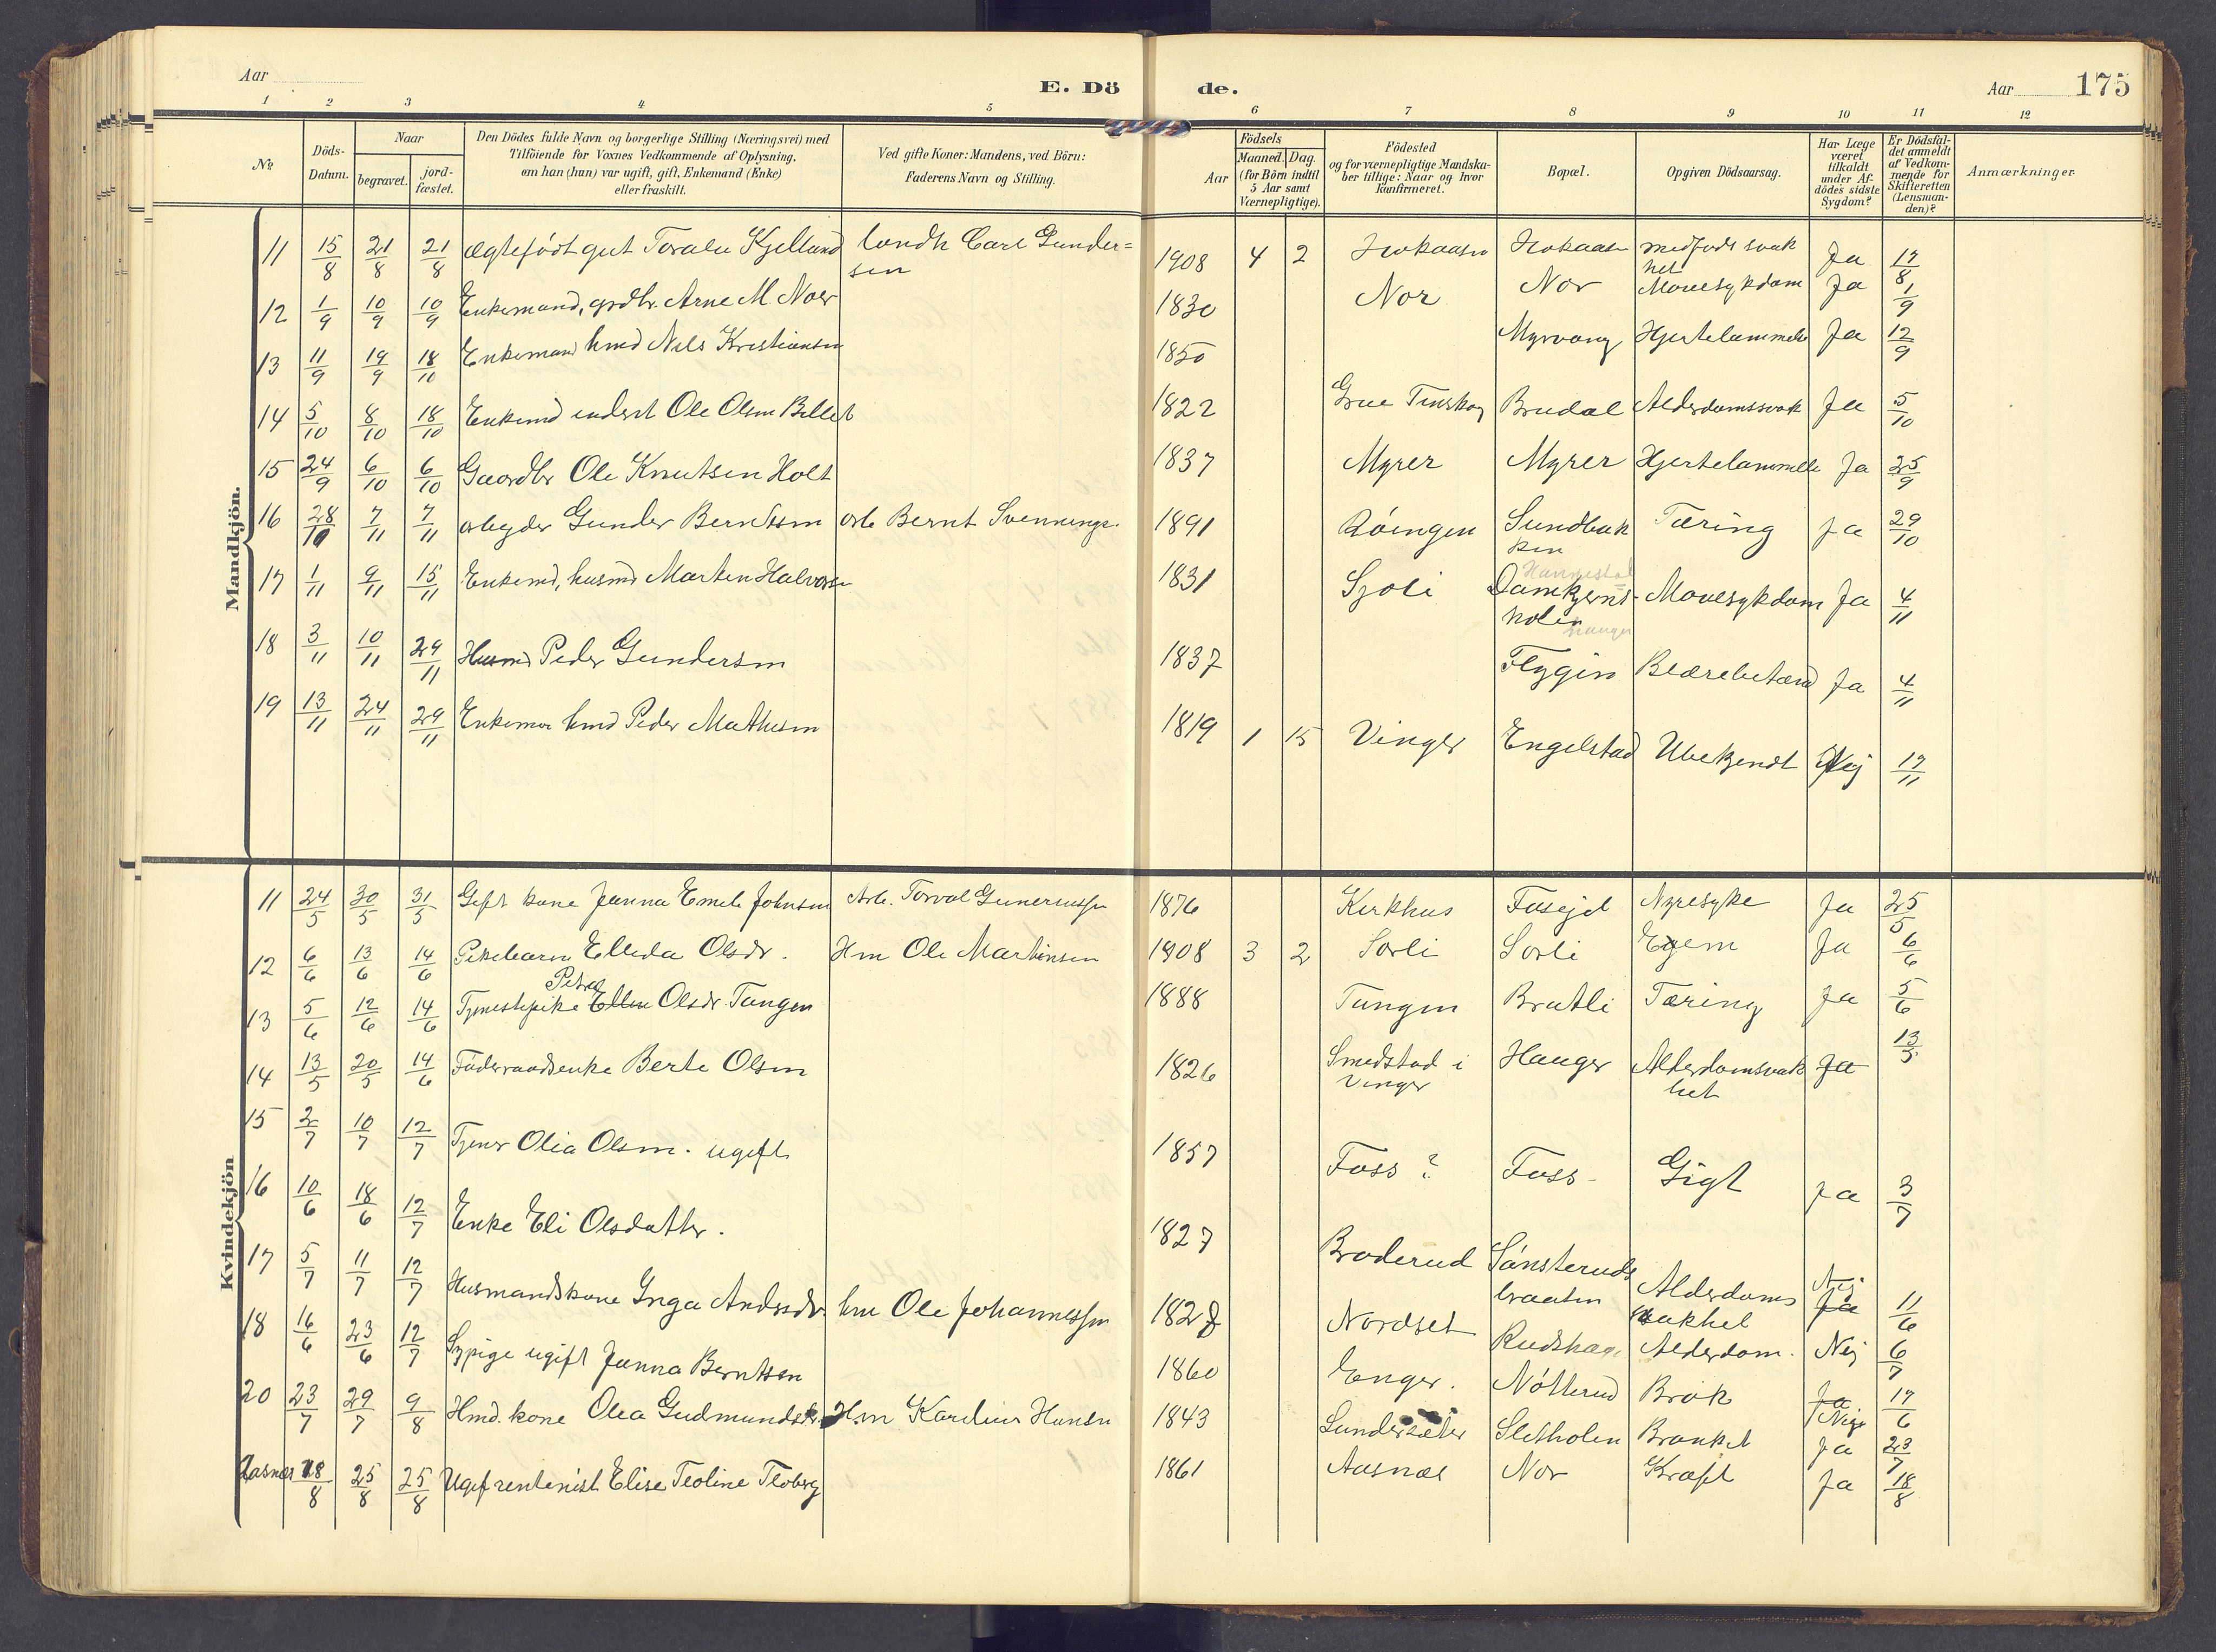 Aar
E. Dö
de.
Aar
175
1 2 3 4 5 6 7 8 9 10 11 12
№
Döds-
Datum.
Naar
begravet.
jord-
fæstet.
Den Dödes fulde Navn og borgerlige Stilling (Næringsvei) med
Tilföiende for Voxnes Vedkommende af Oplysning,
om han (hun) var ugift, gift, Enkemand (Enke)
eller fraskilt.
Ved gifte Koner: Mandens, ved Börn:
Faderens Navn og Stilling.
Födsels
Aar
Maaned. Dag.
(for Börn indtil
5 Aar samt
Værnepligtige).
Födested
og for værnepligtige Mandska-
ber tillige: Naar og hvor
konfirmeret.
Bopæl.
Opgiven Dödsaarsag.
Har Læge
været
tilkaldt
under Af-
dödes sidste
Sygdom?
Er Dödsfal-
det anmeldt
af Vedkom-
mende for
Skifteretten
(Lensman-
den)?
Anmærkninger
Mandkjön.
11 15/8 21/8 21/8 ægtefödt gut Toralv Kjelland landh Carl Gunder=
sen 1908 4 2 medfödt svak
het Ja 17/8
12 1/9 10/9 10/9 Enkemand, grdbr. Arne M. Noer 1830 Nor Nor Mavesykdom Ja 1/9
13 11/9 19/9 18/10 Enkemand hmd Nils Kristiansen 1850 Myrvang Hjertelammelse Ja 12/9
14 5/10 8/10 18/10 Enkemd inderst Ole Olsen Billet 1822 Grue Finskog Brudal Alderdomssvak Ja 5/10
15 24/9 6/10 6/10 Gaardbr Ole Knutsen Holt 1837 Myrer Myrer Hjertelammelse Ja 25/9
16 28/10 7/11 7/11 arbeyder Gunder Berntsen arb Bernt Svennings. 1891 Röingen Sundbak
ken Tæring Ja 29/10
17 1/11 9/11 15/11 Enkemd, husmd Marten Halvorsen 1831 Sjoli Damkjerns-
holen Mavesykdom Ja 4/11
18 3/11 10/11 29/11 Husmd Peder Gundersen 1837 Flygin Blærebetænd Ja 4/11
19 13/11 24/11 29/11 Enkeman hmd Peder Mathisen 1819 1 15 Vinger Engelstad Ubekjendt Nej 17/11
Kvindekjön
11 24/5 30/5 31/5 Gift kone Janna Emelie Johnsen Arb. Torval Gunerussen 1876 Kirkhus Fasejel Nyresyke Ja 25/5
12 6/6 13/6 14/6 Pikebarn Ellida Olsdr. Hm Ole Martinsen 1908 3 2 Sorli Sorli Exem Ja 6/6
Petra
13 5/6 12/6 14/6 Tjenestepike Ellen Olsdr. Tangen 1888 Tangen Bratli Tæring Ja 5/6
14 13/5 20/5 14/6 Föderaadsenke Berte Olsen 1826 Smedstad i
Vinger Hauger Alderdomsvak
het Ja 13/5
15 2/7 10/7 12/7 Tjener Olia Olsen. ugift 1857 Foss? Foss- Gigt Ja 3/7
16 10/6 18/6 12/7 Enke Eli Olsdatter. 1827 Broderud Sönsteruds
braaten Alderdoms
svakhet Nej Ja 11/6
17 5/7 11/7 12/7 Husmandskone Inga Andrsdr. hm Ole Johannessen 1828 Nordset Rudshage Alderdom. Nej 6/7
18 16/6 23/6 12/7 Sypige ugift Janna Berntsen 1860 Enger. Nötterud Brok Ja 17/6
20 23/7 29/7 9/8 Hmd. kone Olea Gudmundsdr. Hm Karelius Hansen 1843 Sundersæter Sletholen Bronket Nej Ja 23/7
Aasnes 18/8 25/8 25/8 Ugift rentenist Elise Teoline Floberg 1861 Aasnæs Nor Kræft Ja 18/8